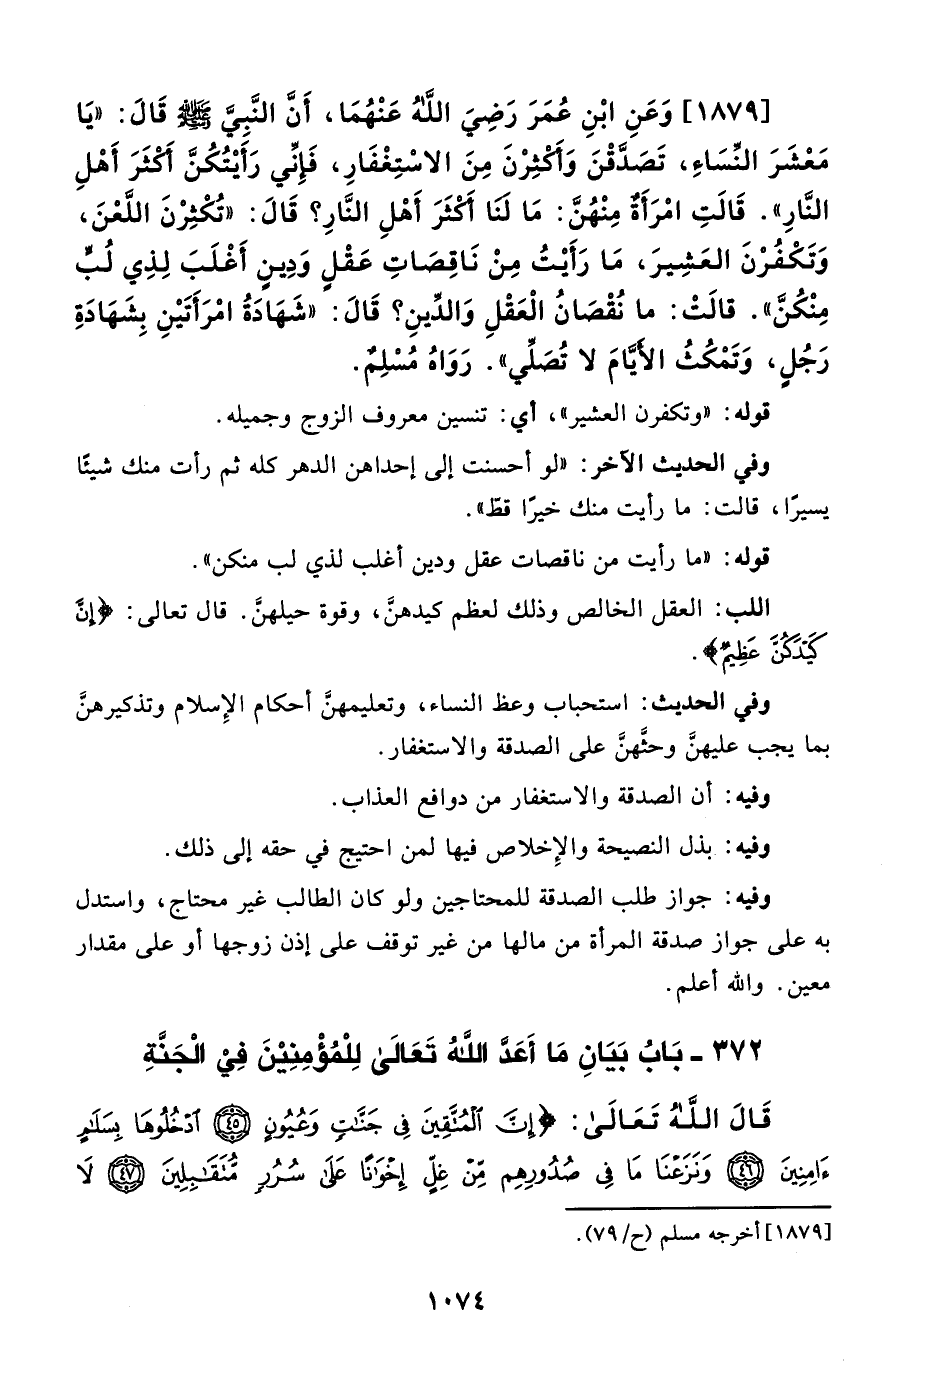 [١٨٧٩] وَعَنِ ابْنِ عُمَرَ رَضِيَ اللَّهُ عَنْهُمَا، أَنَّ النَّبِيَّ ﷺ قَالَ: «يَا
مَعْشَرَ النِّسَاءِ، تَصَدَّقْنَ وَأَكْثِرْنَ مِنَ الاسْتِغْفَارِ، فَإِنِّي رَأَيْتُكُنَّ أَكْثَرَ أَهْلِ
النَّارِ». قَالَتِ امْرَأَةٌ مِنْهُنَّ: مَا لَنَا أَكْثَرَ أَهْلِ النَّارِ؟ قَالَ: «تُكْثِرْنَ اللَّعْنَ،
وَتَكْفُرْنَ العَشِيرَ، مَا رَأَيْتُ مِنْ نَاقِصَاتِ عَقْلٍ وَدِينٍ أَغْلَبَ لِذِي لُبٍّ
مِنْكُنَّ». قالَتْ: ما نُقْصَانُ الْعَقْلِ وَالدِّينِ؟ قَالَ: «شَهَادَةُ امْرَأَتَيْنِ بِشَهَادَةِ
رَجُلٍ، وَتَمْكُثُ الأَيَّامَ لا تُصَلِّي». رَوَاهُ مُسْلِمٌ.
قوله: «وتكفرن العشير»، أي: تنسين معروف الزوج وجميله.
وفي الحديث الآخر: «لو أحسنت إلى إحداهن الدهر كله ثم رأت منك شيئًا
يسيرًا، قالت: ما رأيت منك خيرًا قطّ».
قوله: «ما رأيت من ناقصات عقل ودين أغلب لذي لب منكن».
اللب: العقل الخالص وذلك لعظم كيدهنَّ، وقوة حيلهنَّ. قال تعالى: ﴿إِنَّ
كَيْدَكُنَّ عَظِيمٌ﴾.
وفي الحديث: استحباب وعظ النساء، وتعليمهنَّ أحكام الإسلام وتذكيرهنَّ
بما يجب عليهنَّ وحثّهنَّ على الصدقة والاستغفار.
وفيه: أن الصدقة والاستغفار من دوافع العذاب.
وفيه: بذل النصيحة والإخلاص فيها لمن احتيج في حقه إلى ذلك.
وفيه: جواز طلب الصدقة للمحتاجين ولو كان الطالب غير محتاج، واستدل
به على جواز صدقة المرأة من مالها من غير توقف على إذن زوجها أو على مقدار
معين. والله أعلم.
٣٧٢ - بَابُ بَيَانِ مَا أَعَدَّ اللَّهُ تَعَالَىٰ لِلْمُؤْمِنِيْنَ فِيْ الْجَنَّةِ
قَالَ اللَّهُ تَعَالَىٰ: ﴿إِنَّ الْمُتَّقِينَ فِي جَنَّاتٍ وَعُيُونٍ ٤٥ ادْخُلُوهَا بِسَلَٰمٍ
ءَامِنِينَ ٤٦ وَنَزَعْنَا مَا فِي صُدُورِهِم مِّنْ غِلٍّ إِخْوَٰنًا عَلَىٰ سُرُرٍ مُّتَقَٰبِلِينَ ٤٧ لَا
[١٨٧٩] أخرجه مسلم (ح/٧٩).
١٠٧٤